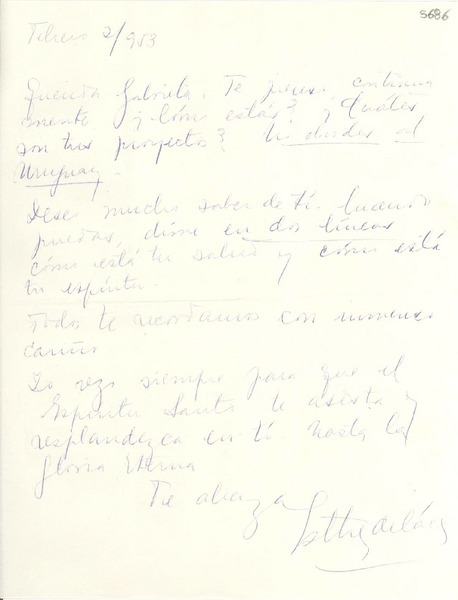 5686
Febrero 2/953
Querida Gabriela. Te pienso continua
mente ¿Cómo estás? ¿Cuáles
son tus proyectos? No olvides al
Uruguay.
Deseo mucho saber de tí. Cuando
puedas, dime en dos líneas
cómo está tu salud y cómo está
tu espíritu.
Todos te recordamos con inmenso
cariño
Yo rezo siempre para que el
Espíritu Santo te asista y
resplandezca en tí hasta la
Gloria Eterna
Te abraza
Esther de Cáceres